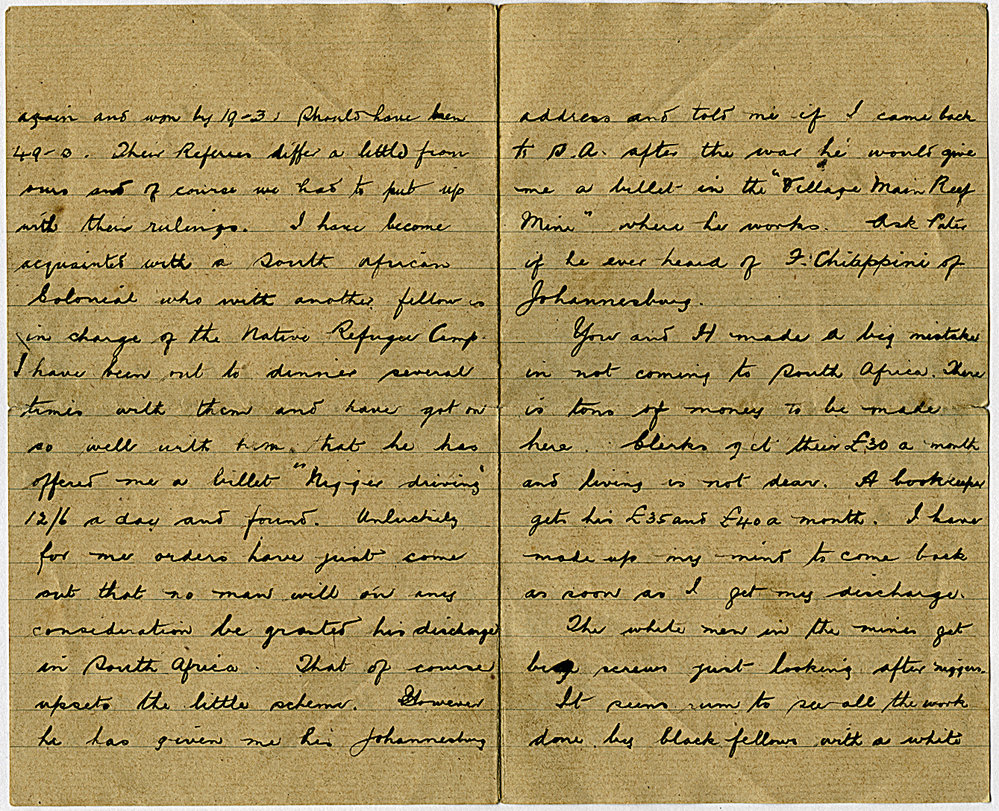 again and won by 19-3: Should have been
49-0. Their Referees differ a little from
ours and of course we had to put up
with their rulings. I have become
acquainted with a South African
Colonial who with another fellow is
in charge of the Native Refugee Camp.
I have been out to dinner several
times with them and have got on
so well with him that he has
offered me a billet "Nigger driving"
12/6 a day and found. Unluckily
for me orders have just come
out that no man will on any
consideration be granted his discharge
in South Africa. That of course
upsets the little scheme. However
he has given me his Johannesburg
address and told me if I came back
to S.A. after the war he would give
me a billet in the "Village Main Reef
Mine" where he works. Ask Pater
if he ever heard of F. Chiappini of
Johannesburg.
You and H made a big mistake
in not coming to South Africa. There
is tons of money to be made
here. Clerks get their £30 a month
and living is not dear. A bookkeeper
gets his £35 and £40 a month. I have
made up my mind to come back
as soon as I get my discharge.
The white men in the mines get
big screws just looking after niggers.
It seems rum to see all the work
done by black fellows with a white